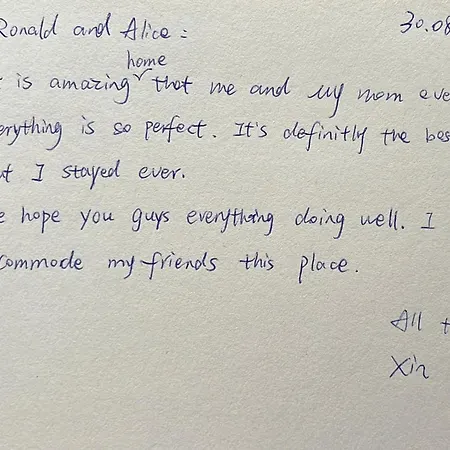 Ronald and Alice: 30.08
home
is amazing that me and my mom eve
erything is so perfect. It's definitly the bes
I stayed ever.
hope you guys everything doing well. I
commode my friends this place.
All
Xin